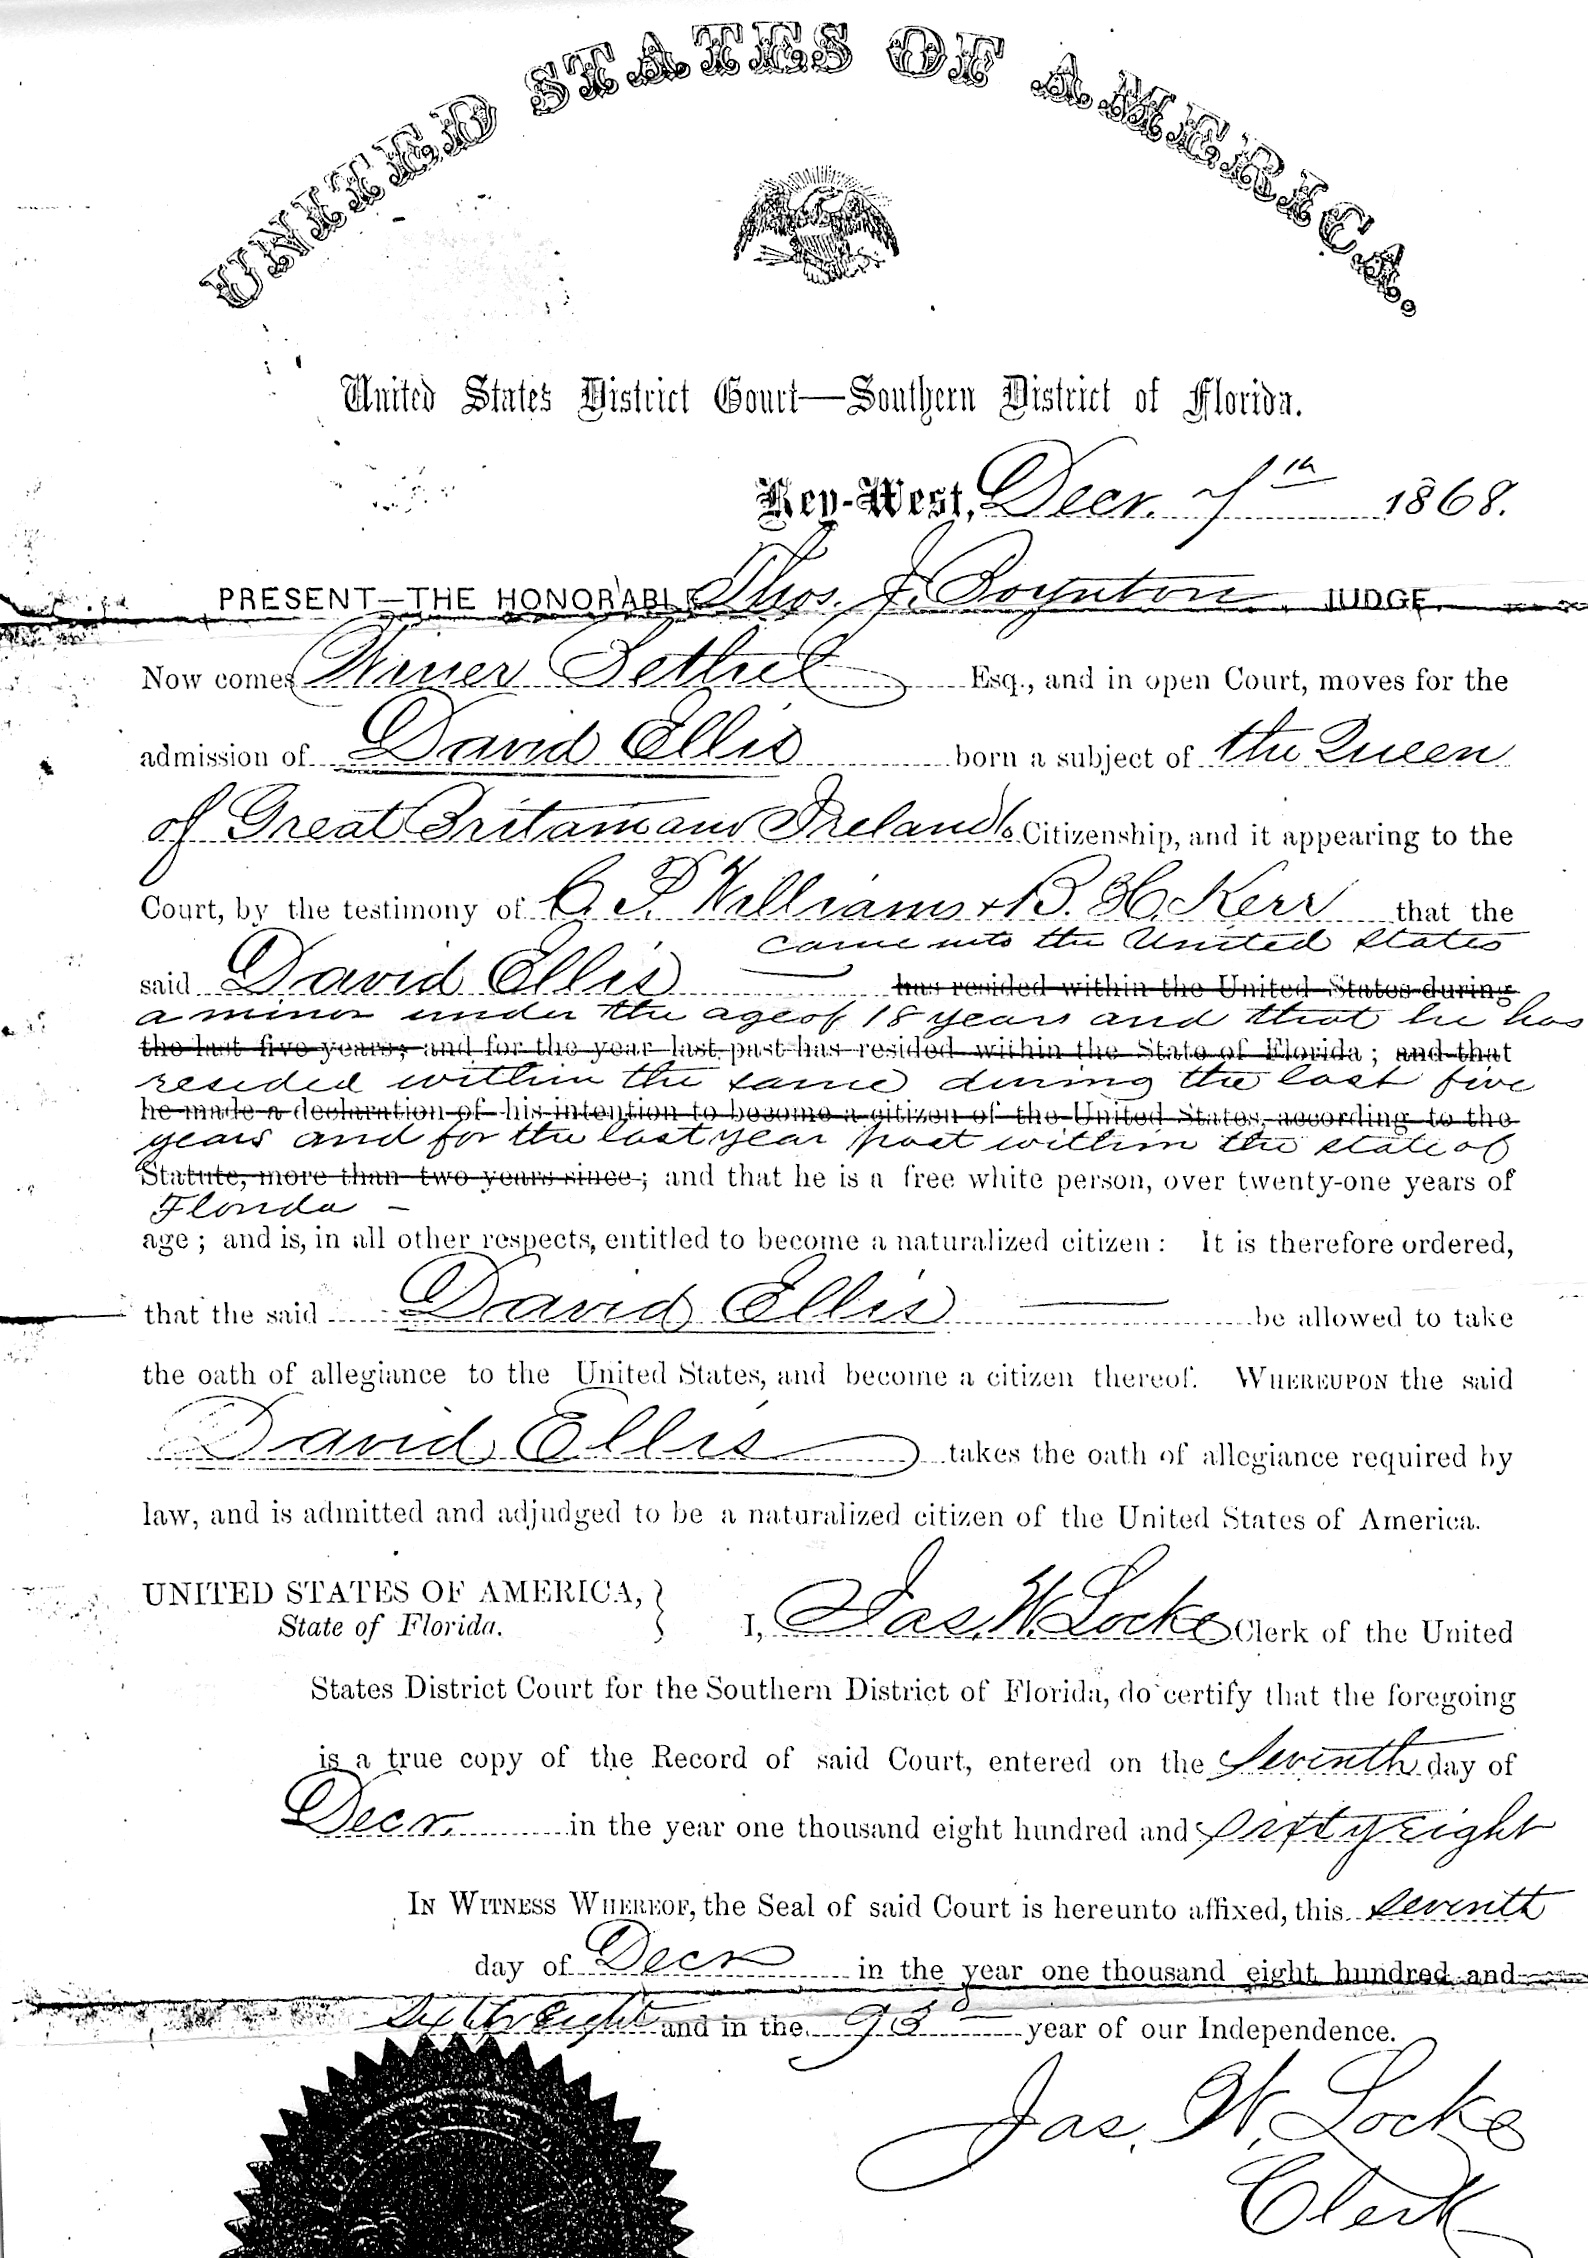 UNITED STATES OF AMERICA.
United States District Court—Southern District of Florida.
Key-West, Decr. 7th 1868.
PRESENT—THE HONORABLE Thos. J. Boynton, JUDGE.
Now comes Winer Bethel Esq., and in open Court, moves for the
admission of David Ellis born a subject of the Queen
of Great Britain and Ireland to Citizenship, and it appearing to the
Court, by the testimony of C. P. Williams + B. H. Kerr that the
came into the United States
said David Ellis has resided within the United States during
a minor under the age of 18 years and that he has
the last five years; and for the year last past has resided within the State of Florida; and that
resided within the same during the last five
he made a declaration of his intention to become a citizen of the United States, according to the
years and for the last year past within the state of
Statute, more than two years since; and that he is a free white person, over twenty-one years of
Florida –
age; and is, in all other respects, entitled to become a naturalized citizen: It is therefore ordered,
that the said David Ellis be allowed to take
the oath of allegiance to the United States, and become a citizen thereof. WHEREUPON the said
David Ellis takes the oath of allegiance required by
law, and is admitted and adjudged to be a naturalized citizen of the United States of America.
UNITED STATES OF AMERICA, }
State of Florida.
I, Jas. W. Locke Clerk of the United
States District Court for the Southern District of Florida, do certify that the foregoing
is a true copy of the Record of said Court, entered on the Seventh day of
Decr. in the year one thousand eight hundred and sixty eight
IN WITNESS WHEREOF, the Seal of said Court is hereunto affixed, this seventh
day of Decr in the year one thousand eight hundred and
sixty eight and in the 93d year of our Independence.
Jas. W. Locke
Clerk